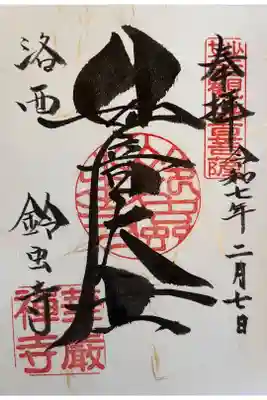 奉拝
令和七年二月七日
地蔵大士
洛西 鈴虫寺
華厳
禅寺